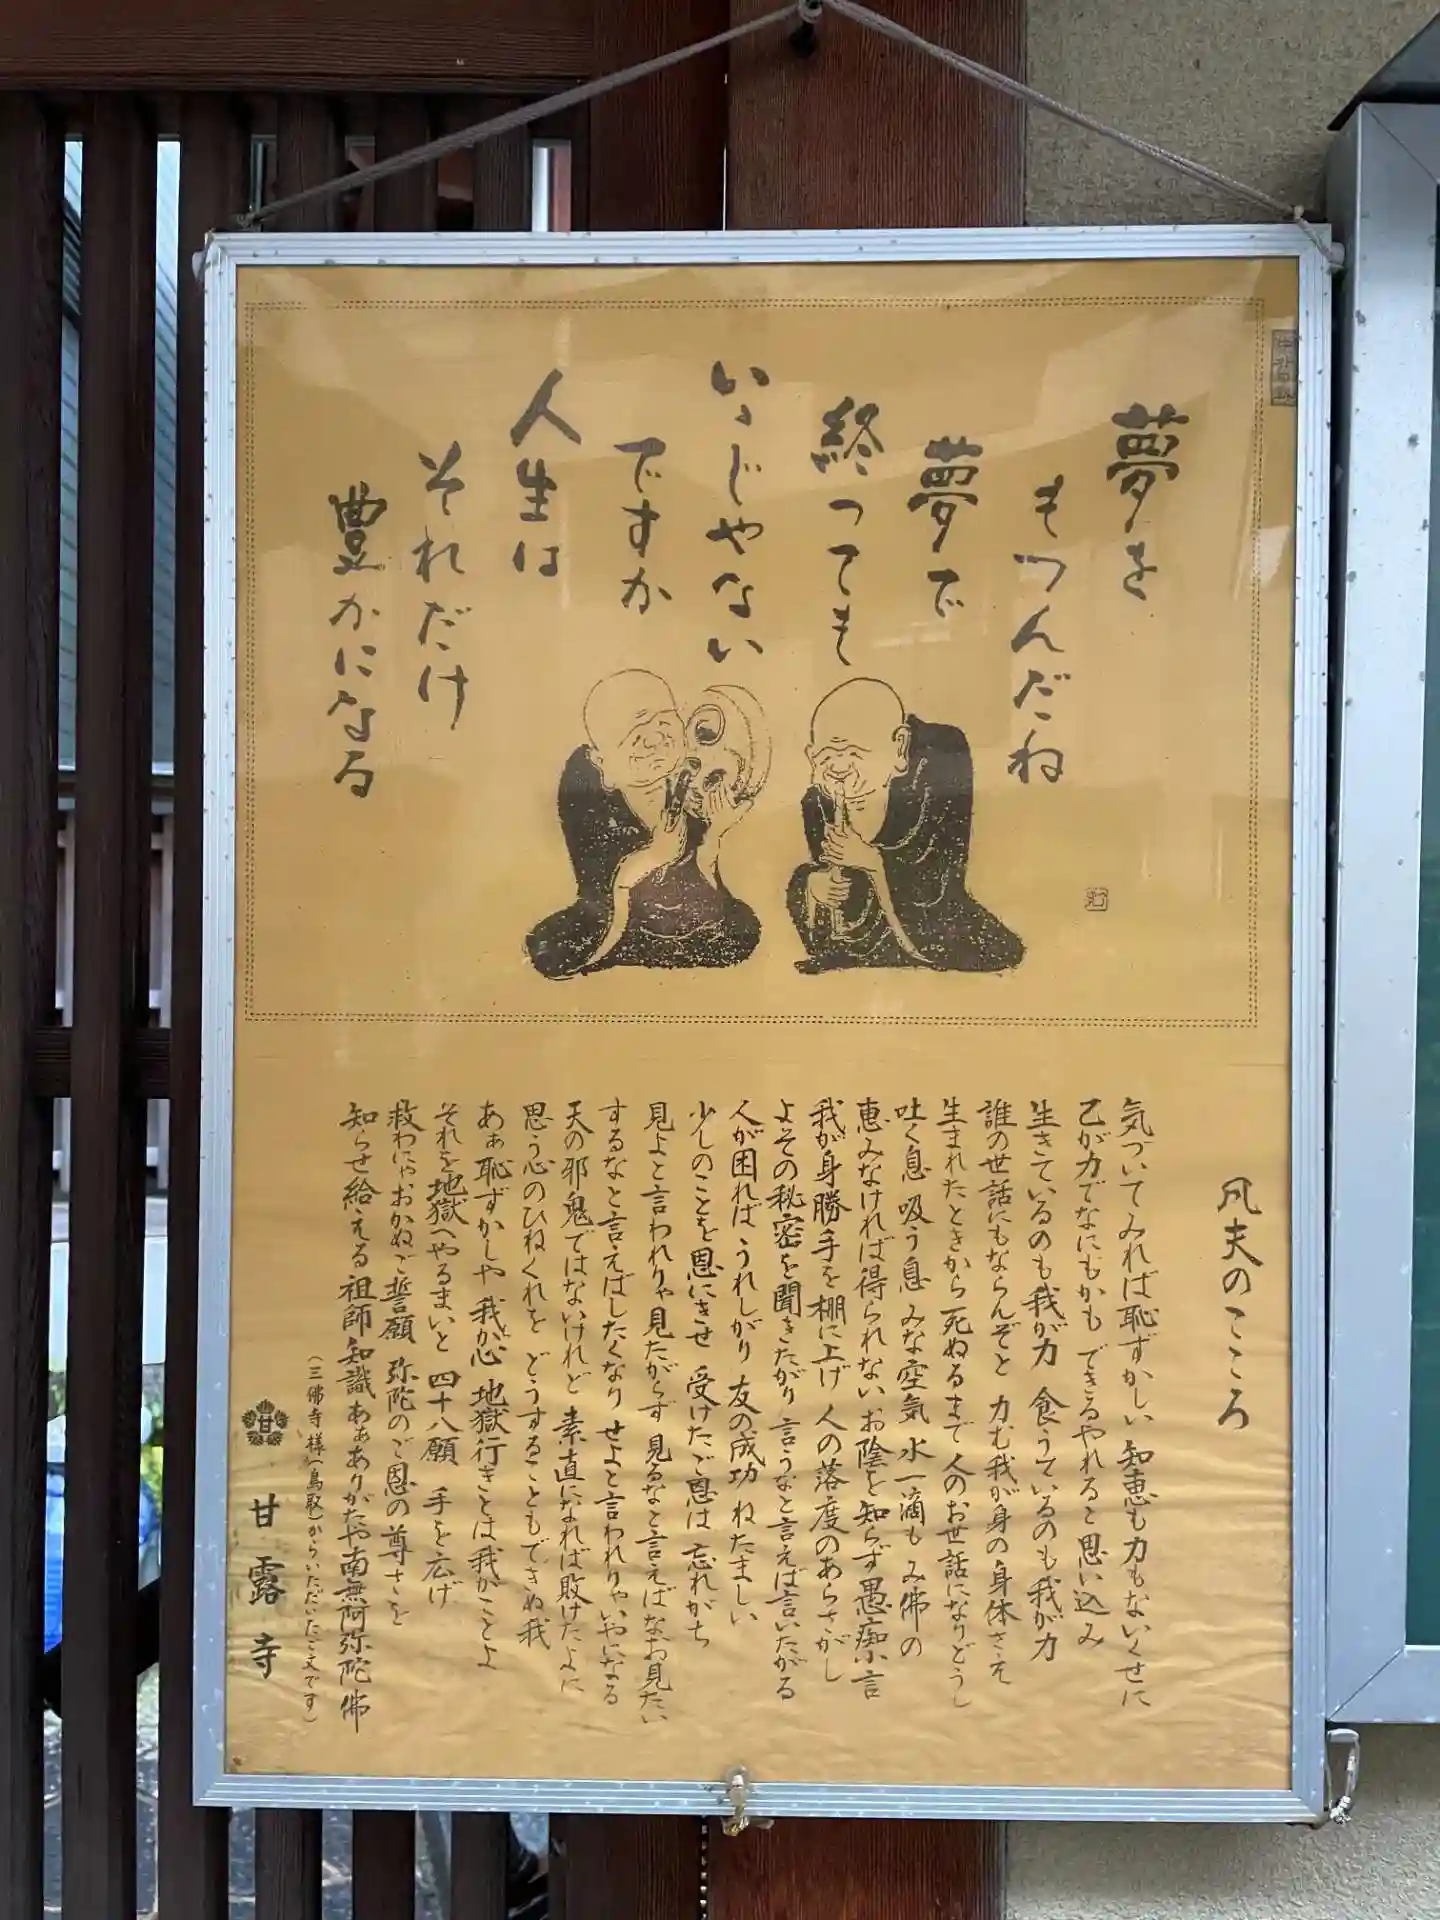 夢を
もつんだね
夢で
終っても
いゝじゃない
ですか
人生は
それだけ
豊かになる
凡夫のこころ
気づいてみれば恥ずかしい 知恵も力もないくせに
己が力でなにもかも できるやれると思い込み
生きているのも我が力 食うているのも我が力
誰の世話にもならんぞと 力む我が身の身体さえ
生まれたときから死ぬるまで 人のお世話になりどうし
吐く息 吸う息 みな空気 水一滴も み佛の
恵みなければ得られない お陰を知らず愚痴を言
我が身勝手を棚に上げ 人の落度のあらさがし
よその秘密を聞きたがり 言うなと言えば言いたがる
人が困ればうれしがり 友の成功 ねたましい
少しのことを恩にきせ 受けたご恩は忘れがち
見よと言われりゃ見たがらず 見るなと言えばなお見たい
するなと言えばしたくなり せよと言われりゃいやになる
天の邪鬼ではないけれど 素直になれば敗けたよに
思う心のひねくれを どうすることもできぬ我
あぁ恥ずかしや 我が心 地獄行きとは我がことよ
それを地獄へやるまいと 四十八願 手を広げ
救わにゃおかぬご誓願 弥陀のご恩の尊さを
知らせ給える祖師知識 あぁありがたや南無阿弥陀佛
(三佛寺様(鳥取)からいただいたご文です)
甘
甘露寺